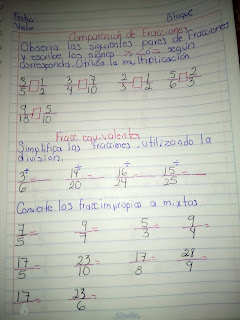 Fecha Bloque
Valor
Comparación de Fracciones
Observa las siguientes pares de Fracciones
y escribe los signos >, < o = según
corresponda. Utiliza la multiplicación
3/5 □ 1/2 3/4 □ 7/10 2/3 □ 1/2 5/6 □ 2/3
9/18 □ 5/10
Fracc equivalentes
Simplifica las fracciones, utilizando la
división.
3÷/6 = 14÷/20 = 16÷/24 = 15÷/25 =
Convierte las fracc impropias a mixtos
7/5 = 9/7 = 5/3 = 9/4 =
17/5 = 23/10 = 17/8 = 28/9 =
17 = 23/6 =